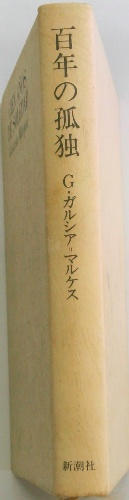 百年の孤独
G・ガルシア=マルケス
新潮社